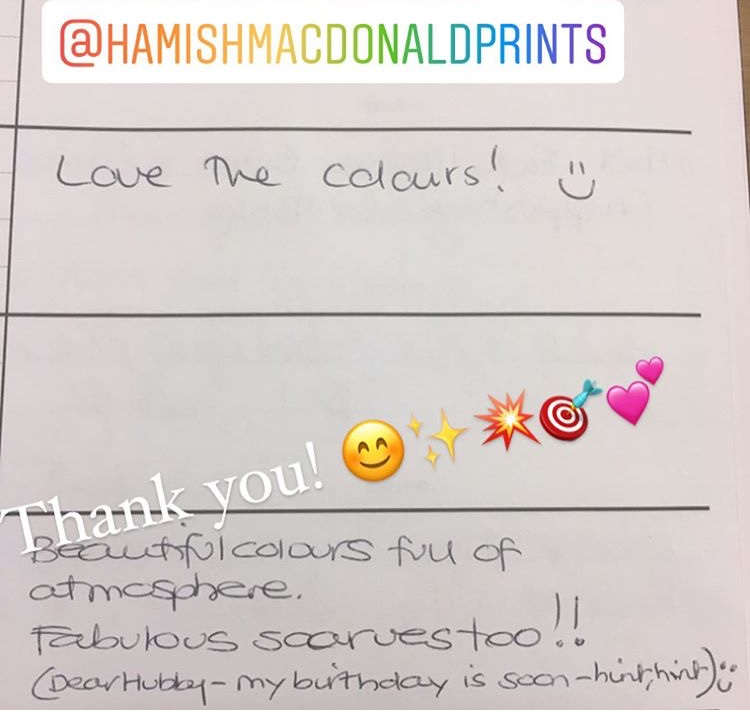 @HAMISHMACDONALDPRINTS
Love The colours! :)
Thank you! 😊✨💥🎯💕
Beautiful colours full of
atmosphere.
Fabulous scarves too!!
(Dear Hubby - my birthday is soon - hint, hint) :)